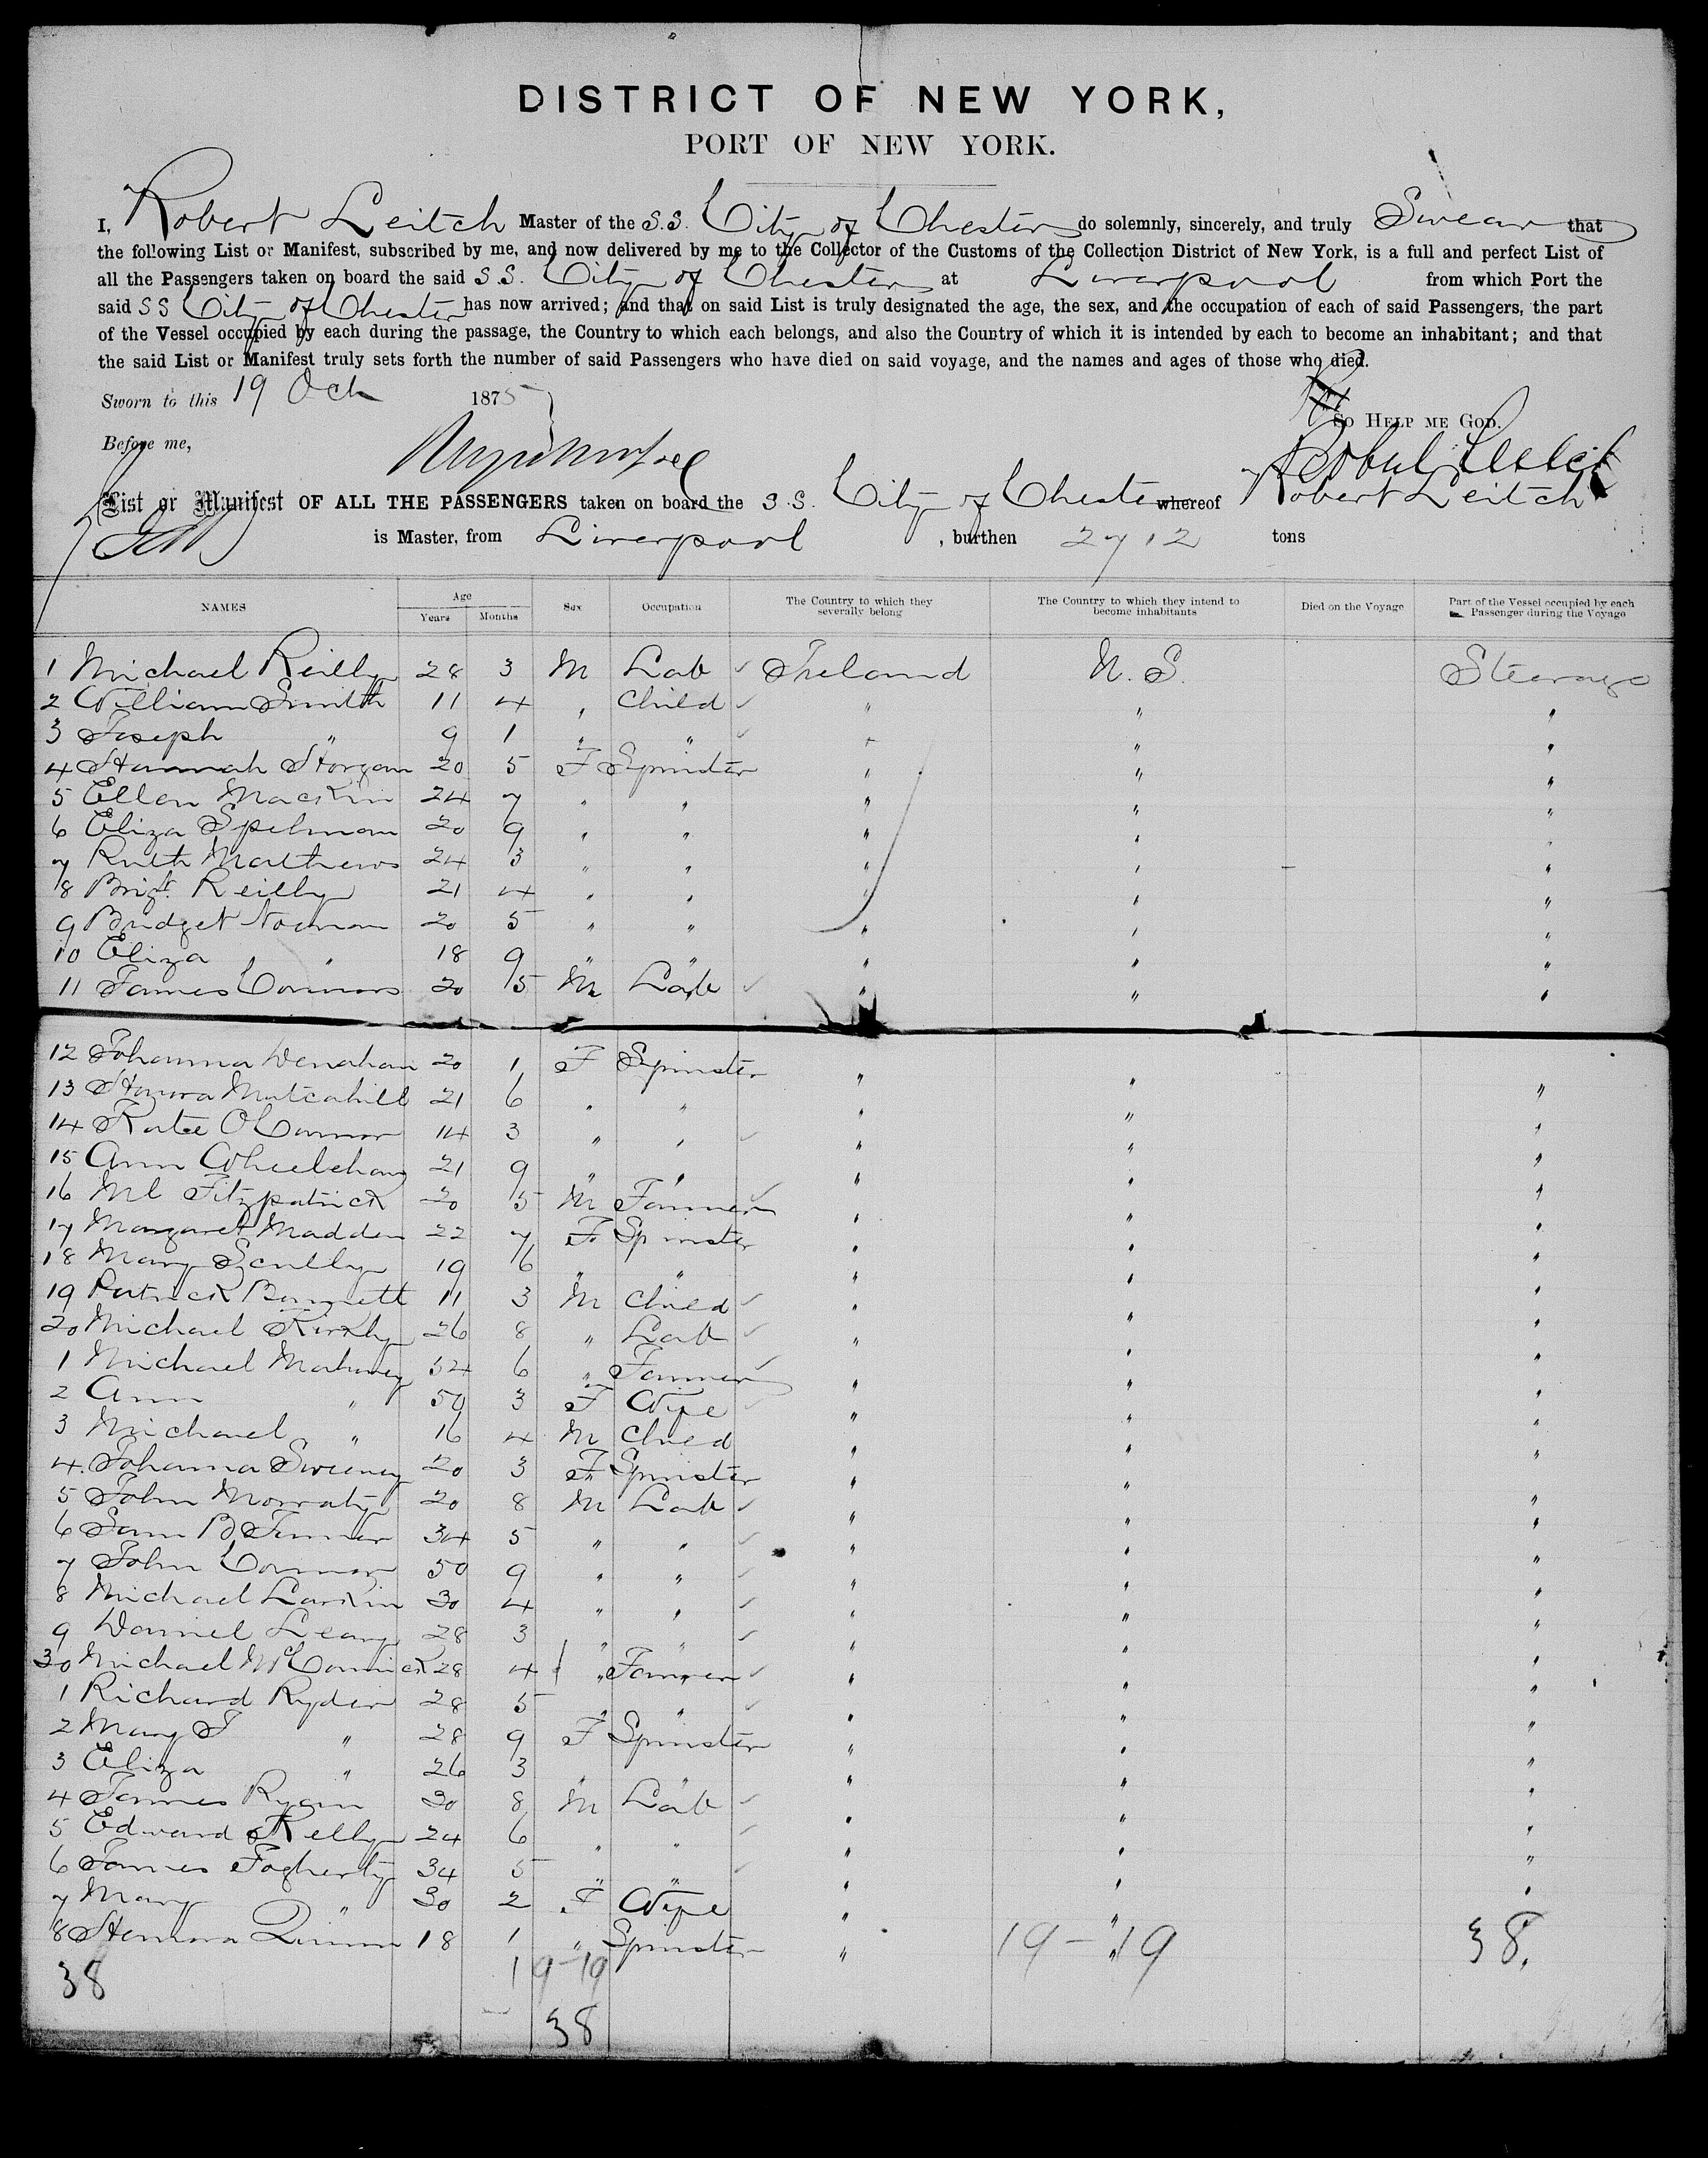 DISTRICT OF NEW YORK,
PORT OF NEW YORK.
I, Robert Leitch Master of the S.S. City of Chester do solemnly, sincerely, and truly Swear that
the following List or Manifest, subscribed by me, and now delivered by me to the Collector of the Customs of the Collection District of New York, is a full and perfect List of
all the Passengers taken on board the said S.S. City of Chester at Liverpool from which Port the
said SS City of Chester has now arrived; and that on said List is truly designated the age, the sex, and the occupation of each of said Passengers, the part
of the Vessel occupied by each during the passage, the Country to which each belongs, and also the Country of which it is intended by each to become an inhabitant; and that
the said List or Manifest truly sets forth the number of said Passengers who have died on said voyage, and the names and ages of those who died.
Sworn to this 19 Oct 1875
So HELP ME GOD.
Before me,
Robert Leitch
List or Manifest OF ALL THE PASSENGERS taken on board the S.S. City of Chester whereof Robert Leitch
is Master, from Liverpool , burthen 2712 tons
NAMES Age Years Months Sex Occupation The Country to which they severally belong The Country to which they intend to become inhabitants Died on the Voyage Part of the Vessel occupied by each Passenger during the Voyage
1 Michael Reilly 28 3 M Lab Ireland U.S. Steerage
2 William Smith 11 4 " Child " " "
3 Joseph " 9 1 " " " " "
4 Hannah Horgan 20 5 F Spinster " " "
5 Ellen Mackin 24 7 " " " " "
6 Eliza Spelman 20 9 " " " " "
7 Ruth Matthews 24 3 " " " " "
8 Brigt Reilly 21 4 " " " " "
9 Bridget Noonan 20 5 " " " " "
10 Eliza " 18 9 " " " " "
11 James Connors 20 5 M Lab " " "
12 Johanna Denahan 20 1 F Spinster " " "
13 Honora Mulcahill 21 6 " " " " "
14 Kate O'Connor 14 3 " " " " "
15 Ann Wheelehan 21 9 " " " " "
16 Ml Fitzpatrick 20 5 M Farmer " " "
17 Margaret Madden 22 7 F Spinster " " "
18 Mary Scully 19 6 " " " " "
19 Patrick Bennett 11 3 M Child " " "
20 Michael Kirkby 26 8 " Lab " " "
1 Michael Mahoney 54 6 " Farmer " " "
2 Ann " 50 3 F Wife " " "
3 Michael " 16 4 M Child " " "
4 Johanna Sweeney 20 3 F Spinster " " "
5 John Moriaty 20 8 M Lab " " "
6 Sam B 34 5 " " " " "
7 John Connor 50 9 " " " " "
8 Michael Larkin 30 4 " " " " "
9 Daniel Leary 28 3 " " " " "
30 Michael McCormick 28 4 " Farmer " " "
1 Richard Ryder 28 5 " " " " "
2 Mary J " 28 9 F Spinster " " "
3 Eliza " 26 3 " " " " "
4 James Ryan 30 8 M Lab " " "
5 Edward Kelly 24 6 " " " " "
6 James Fogherty 34 5 " " " " "
7 Mary " 30 2 F Wife " " "
8 Honora Quinn 18 1 " Spinster " " "
38 19-19 19-19 38.
38